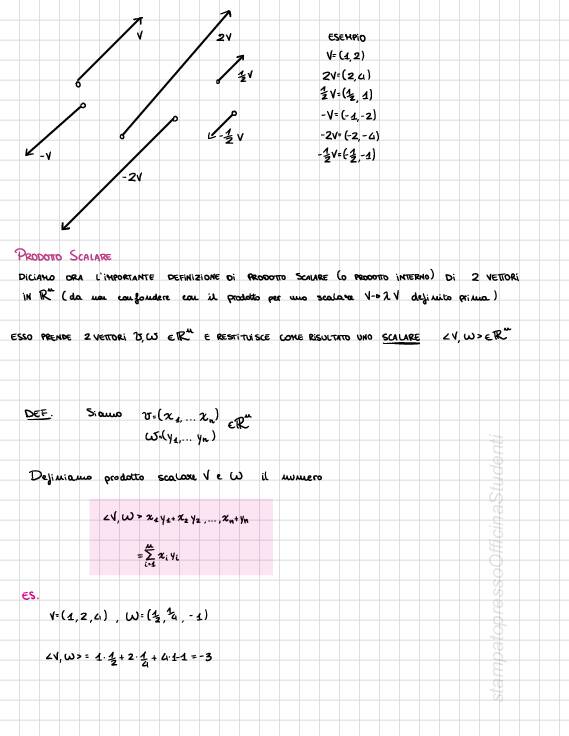 V
2V
½V
-V
-½V
-2V
ESEMPIO
V=(1,2)
2V=(2,4)
½V=(½, 1)
-V=(-1,-2)
-2V=(-2,-4)
-½V=(-½,-1)
PRODOTTO SCALARE
DICIAMO ORA L'IMPORTANTE DEFINIZIONE DI PRODOTTO SCALARE (O PRODOTTO INTERNO) DI 2 VETTORI
IN ℝⁿ (da non confondere con il prodotto per uno scalare V→λV definito prima)
ESSO PRENDE 2 VETTORI V,W ∈ℝⁿ E RESTITUISCE COME RISULTATO UNO SCALARE <V,W>∈ℝⁿ
DEF. Siano V=(x₁,... xₙ) ∈ℝⁿ
W=(y₁,... yₙ)
Definiamo prodotto scalare V e W il numero
<V,W> = x₁y₁+x₂y₂,...,xₙ+yₙ
=∑ⁿᵢ₌₁ xᵢyᵢ
ES.
V=(1,2,4) , W=(½,¼,-1)
<V,W>= 1·½+2·¼+4·1-1=-3
stampatopressoOfficinaStudenti